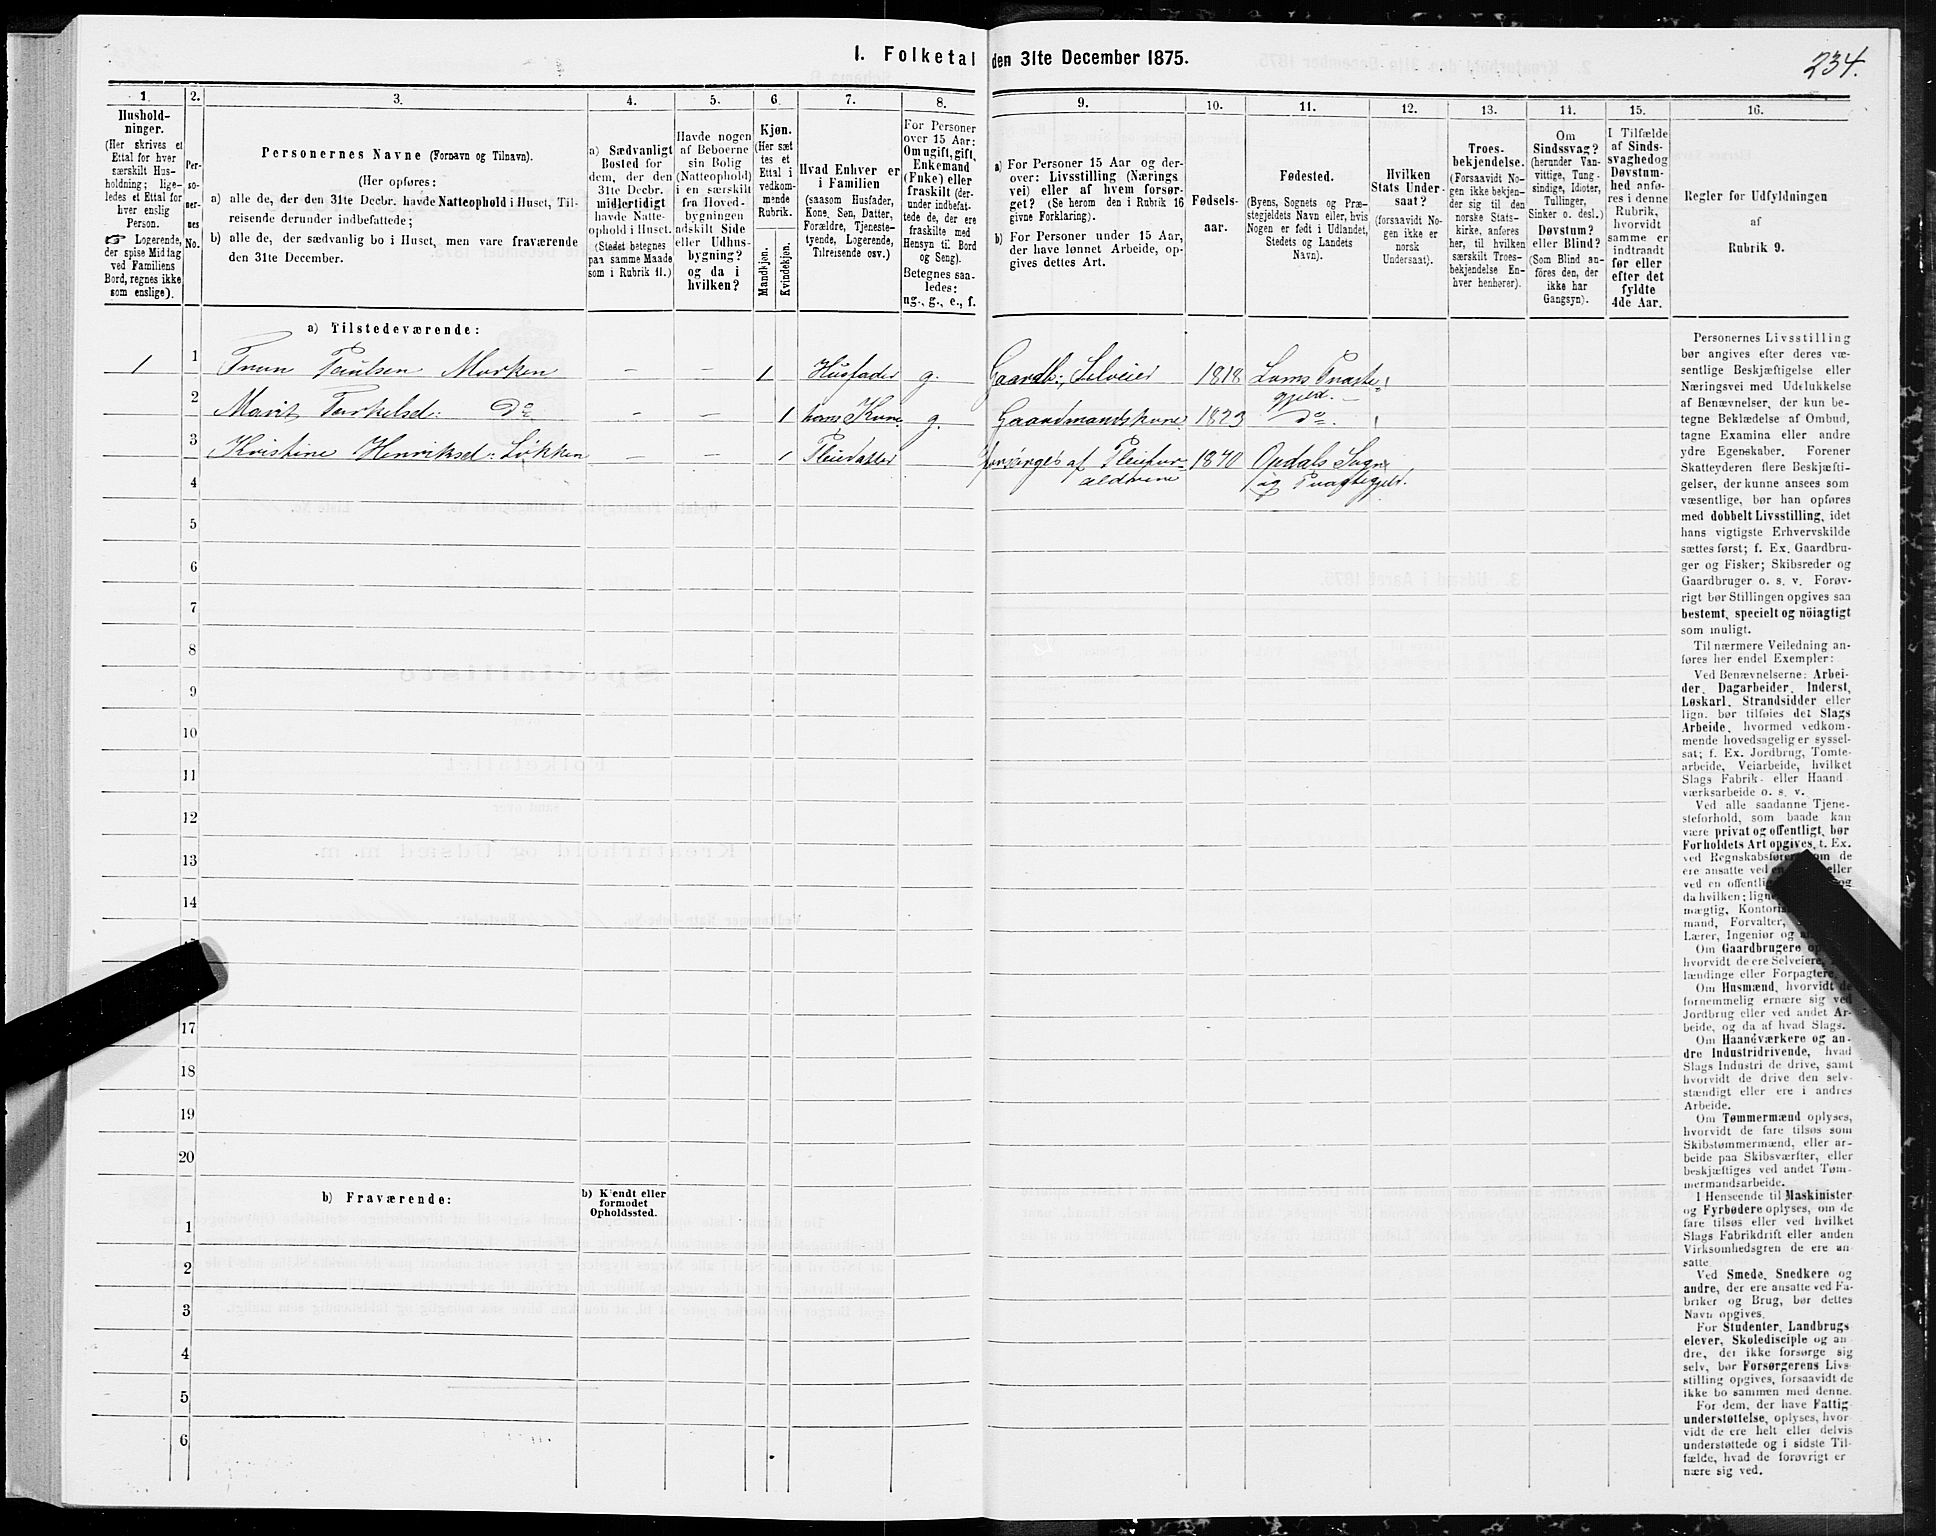 I. Folketal den 31te December 1875.
234.
1.
Hushold-
ninger.
(Her skrives et
Ettal for hver
særskilt Hus-
holdning; lige-
ledes et Ettal for
hver enslig
Person.
☞ Logerende,
der spise Middag
ved Familiens
Bord, regnes ikke
som enslige).
2.
Per-
so-
ner-
nes
No.
3.
Personernes Navne (Fornavn og Tilnavn).
(Her opføres:
a) alle de, der den 31te Decbr. havde Natteophold i Huset, Til-
reisende derunder indbefattede;
b) alle de, der sædvanlig bo i Huset, men vare fraværende
den 31te December.
4.
a) Sædvanligt
Bosted for
dem, der den
31te Decbr.
midlertidigt
havde Natte-
ophold i Huset.
(Stedet betegnes
paa samme Maade
som i Rubrik 11.)
5.
Havde nogen
af Beboerne
sin Bolig
(Natteophold)
i en særskilt
fra Hoved-
bygningen
adskilt Side
eller Udhus-
bygning?
og da i
hvilken?
6.
Kjøn.
(Her sæt
tes et
Ettal i
vedkom-
mende
Rubrik.
Mandkjøn.
Kvindekjøn.
7.
Hvad Enhver er
i Familien
(saasom Husfader,
Kone, Søn, Datter,
Forældre, Tjeneste-
tyende, Logerende,
Tilreisende osv.)
8.
For Personer
over 15 Aar:
Om ugift, gift,
Enkemand
(Enke) eller
fraskilt (der-
under indbefat-
tede de, der ere
fraskilte med
Hensyn til Bord
og Seng).
Betegnes saa-
ledes:
ug., g., e., f.
9.
a) For Personer 15 Aar og der-
over: Livsstilling (Nærings
vei) eller af hvem forsør-
get? (Se herom den i Rubrik 16
givne Forklaring).
b) For Personer under 15 Aar,
der have lønnet Arbeide, op-
gives dettes Art.
10.
Fødsels-
aar.
11.
Fødested.
(Byens, Sognets og Præ-
stegjeldets Navn eller, hvis
Nogen er født i Udlandet,
Stedets og Landets
Navn).
12.
Hvilken
Stats Under-
saat?
(forsaavidt No-
gen ikke er
norsk
Undersaat).
13.
Troes-
bekjendelse.
(Forsaavidt No-
gen ikke bekjen-
der sig til den
norske Stats-
kirke, anføres
her, til hvilken
særskilt Troes-
bekjendelse En-
hver henhører).
14.
Om
Sindssvag?
(herunder Van-
vittige, Tung-
sindige, Idioter,
Tullinger,
Sinker o. desl.)
Døvstum?
eller Blind?
(Som Blind an-
føres den, der
ikke har
Gangsyn).
15.
I Tilfælde
af Sinds-
svaghed og
Døvstum-
hed anfø-
res i denne
Rubrik,
hvorvidt
samme er
indtraadt
før eller
efter det
fyldte
4de Aar.
16.
Regler for Udfyldningen
af
Rubrik 9.
a) Tilstedeværende:
1 1 Paulsen Morken — — 1 Husfader g. Gaardb: Selveier 1818 Loms Præste-
gjeld. —
2 Marit Torkelsd: Do — — 1 hans Kone g. Gaardmandskone 1823 Do.
3 Kristine Henriksd: Løkken — — 1 Pleiedatter forsørges af Pleiefor- 1870 Opdals Sogn
ældrene og Præstegjeld.
4
5
6
7
8
9
10
11
12
13
14
17
18
19
20
b) Fraværende:
b) Kjendt eller
formodet
Opholdssted.
1
2
3
4
5
6
Personernes Livsstilling
bør angives efter deres væ-
sentlige Beskjæftigelse eller
Næringsvei med Udelukkelse
af Benævnelser, der kun be-
tegne Beklædelse af Ombud,
tagne Examina eller andre
ydre Egenskaber. Forener
Skatteyderen flere Beskjæfti-
gelser, der kunne ansees som
væsentlige, bør han opføres
med dobbelt Livsstilling, idet
hans vigtigste Erhvervskilde
sættes først; f. Ex. Gaardbru-
ger og Fisker; Skibsreder og
Gaardbruger o. s. v. Forøv-
rigt bør Stillingen opgives saa
bestemt, specielt og nöiagtigt
som muligt.
Til nærmere Veiledning an-
føres her endel Exempler:
Ved Benævnelserne: Arbei-
der, Dagarbeider, Inderst,
Løskarl, Strandsidder eller
lign. bør tilføies det Slags
Arbeide, hvormed vedkom-
mende hovedsagelig er syssel-
sat; f. Ex. Jordbrug, Tomte-
arbeide, Veiarbeide, hvilket
Slags Fabrik- eller Haand
værksarbeide o. s. v.
Ved alle saadanne Tjene-
steforhold, som baade kan
være privat og offentligt, bør
Forholdets Art opgives, f. Ex.
ved Regnskabsfører, om de
ere ansatte ved en eller
ved en offentlig og
da hvilken;
mægtig,
mand, Forvalter,
Lærer, Ingeniør og
Om Gaardbrugere
hvorvidt de ere Selveiere,
lændinge eller Forpagtere.
Om Husmænd, hvorvidt de
fornemmelig ernære sig ved
Jordbrug eller ved andet Ar-
beide, og da af hvad Slags.
Om Haandværkere og an-
dre Industridrivende, hvad
Slags Industri de drive, samt
hvorvidt de drive den selv-
stændigt eller ere i andres
Arbeide.
Om Tømmermænd oplyses,
hvorvidt de fare tilsøs som
Skibstømmermænd, eller ar-
beide paa Skibsværfter, eller
beskjæftiges ved andet Tøm-
mermandsarbeide.
I Henseende til Maskinister
og Fyrbødere oplyses, om de
fare tilsøs eller ved hvilket
Slags Fabrikdrift eller anden
Virksomhedsgren de ere an-
satte.
Ved Smede, Snedkere og
andre, der ere ansatte ved Fa-
briker og Brug, bør dettes
Navn opgives.
For Studenter, Landbrugs
elever, Skoledisciple og an
dre, der ikke forsørge sig
selv, bør Forsørgerens Livs-
stilling opgives, forsaavidt de
ikke bo sammen med denne.
For dem, der have Fattig-
understøttelse, oplyses, hvor-
vidt de ere helt eller delvis
understøttede og i sidste Til-
fælde, hvad de forøvrigt er
nære sig ved.